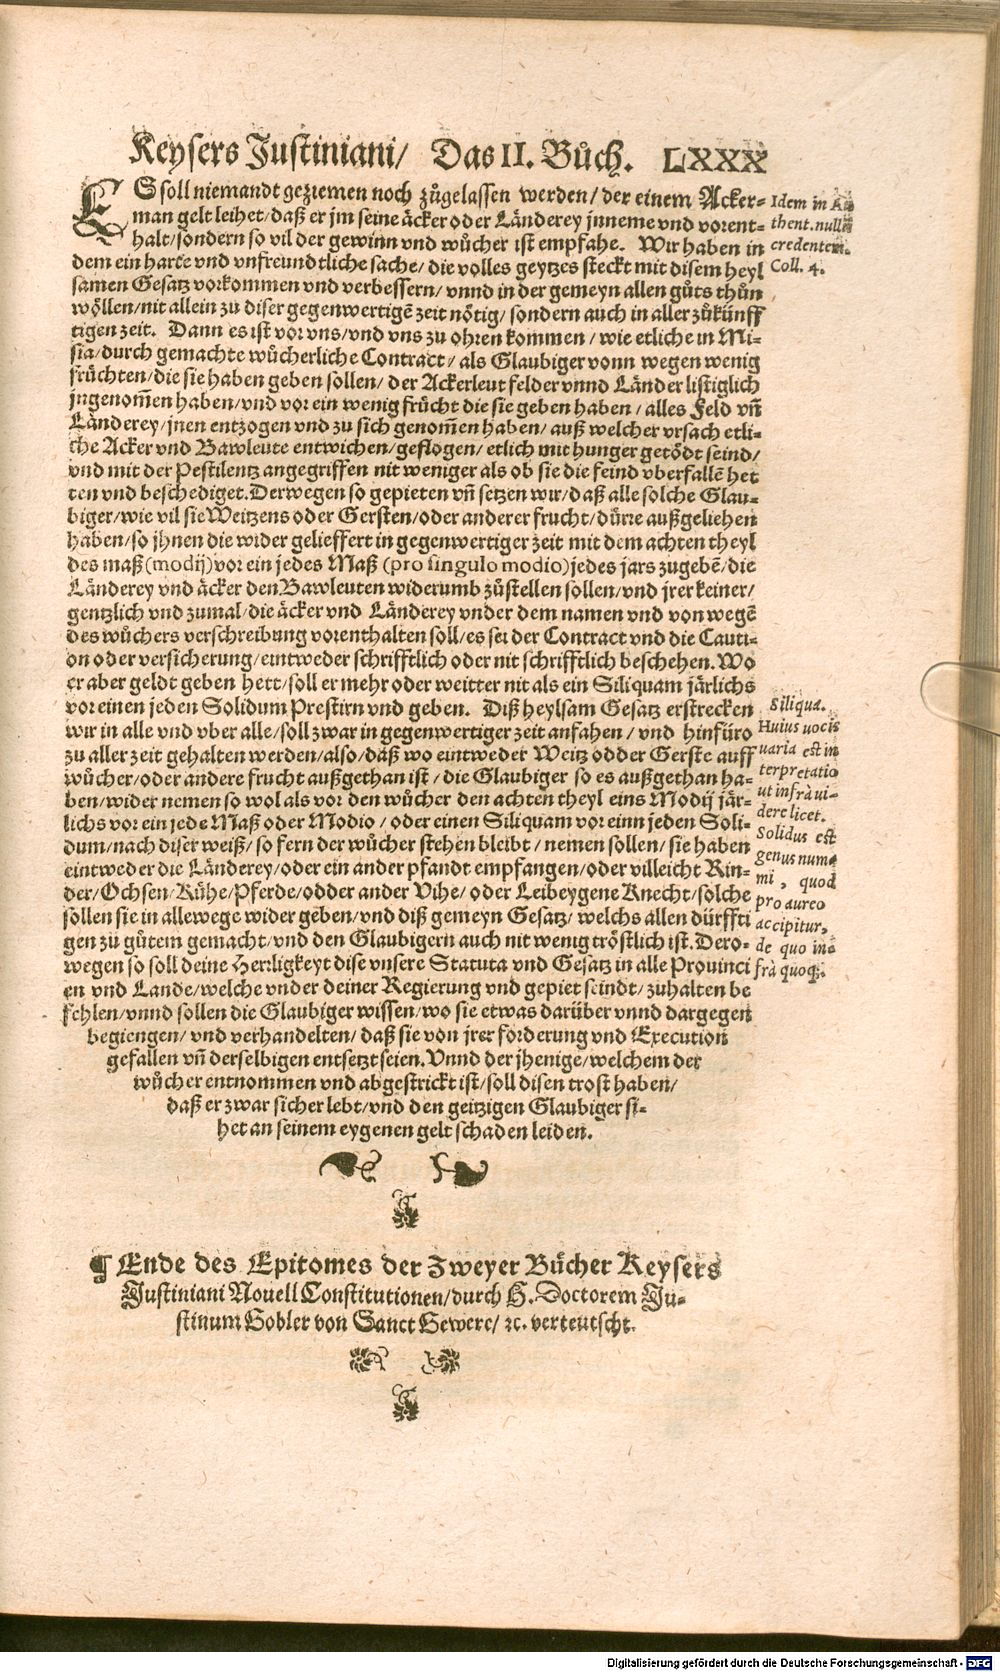 Keysers Justiniani/ Das II. Bůch. LXXX
ES soll niemandt geziemen noch zůgelassen werden/ der einem Acker-
man gelt leihet/ daß er jm seine äcker oder Länderey jnneme vnd vorent-
halt/ sondern so vil der gewinn vnd wůcher ist empfahe. Wir haben in
dem ein harte vnd vnfreundtliche sache/ die volles geytzes steckt mit disem heyl
samen Gesatz vorkommen vnd verbessern/ vnnd in der gemeyn allen gůts thůn
wöllen/ nit allein zu diser gegenwertigē zeit nötig/ sondern auch in aller zůkünff
tigen zeit. Dann es ist vor vns/ vnd vns zu ohren kommen/ wie etliche in Mi-
sia/ durch gemachte wůcherliche Contract/ als Glaubiger vonn wegen wenig
früchten/ die sie haben geben sollen/ der Ackerleut felder vnnd Länder listiglich
jngenom̄en haben/ vnd vor ein wenig frücht die sie geben haben/ alles Feld vn̄
Länderey/ jnen entzogen vnd zu sich genom̄en haben/ auß welcher vrsach etli-
che Acker vnd Bawleute entwichen/ geflogen/ etlich mit hunger getödt seind/
vnd mit der Pestilentz angegriffen nit weniger als ob sie die feind vberfallē het
ten vnd beschediget. Derwegen so gepieten vn̄ setzen wir/ daß alle solche Glau-
biger/ wie vil sie Weitzens oder Gersten/ oder anderer frucht/ dürre außgeliehen
haben/ so jhnen die wider gelieffert in gegenwertiger zeit mit dem achten theyl
des maß (modij) vor ein jedes Maß (pro singulo modio) jedes jars zugebē/ die
Länderey vnd äcker den Bawleuten widerumb zůstellen sollen/ vnd jrer keiner/
gentzlich vnd zumal/ die äcker vnd Länderey vnder dem namen vnd von wegē
des wůchers verschreibung vorenthalten soll/ es sei der Contract vnd die Cauti-
on oder versicherung/ eintweder schrifftlich oder nit schrifftlich beschehen. Wo
er aber geldt geben hett/ soll er mehr oder weitter nit als ein Siliquam järlichs
vor einen jeden Solidum Prestirn vnd geben. Diß heylsam Gesatz erstrecken
wir in alle vnd vber alle/ soll zwar in gegenwertiger zeit anfahen/ vnd hinfüro
zu aller zeit gehalten werden/ also/ daß wo eintweder Weitz odder Gerste auff
wůcher/ oder andere frucht außgethan ist/ die Glaubiger so es außgethan ha-
ben/ wider nemen so wol als vor den wůcher den achten theyl eins Modij jär-
lichs vor ein jede Maß oder Modio/ oder einen Siliquam vor einn jeden Soli-
dum/ nach diser weiß/ so fern der wůcher stehen bleibt/ nemen sollen/ sie haben
eintweder die Länderey/ oder ein ander pfandt empfangen/ oder villeicht Rin-
der/ Ochsen/ Kühe/ Pferde/ odder ander Vihe/ oder Leibeygene Knecht/ solche
sollen sie in allewege wider geben/ vnd diß gemeyn Gesatz/ welchs allen dürffti
gen zů gůtem gemacht/ vnd den Glaubigern auch nit wenig tröstlich ist. Dero-
wegen so soll deine Herrligkeyt dise vnsere Statuta vnd Gesatz in alle Prouinci
en vnd Lande/ welche vnder deiner Regierung vnd gepiet seindt/ zuhalten be
fehlen/ vnnd sollen die Glaubiger wissen/ wo sie etwas darüber vnnd dargegen
begiengen/ vnd verhandelten/ daß sie von jrer forderung vnd Execution
gefallen vn̄ derselbigen entsetzt seien. Vnnd der jhenige/ welchem der
wůcher entnommen vnd abgestrickt ist/ soll disen trost haben/
daß er zwar sicher lebt/ vnd den geitzigen Glaubiger si-
het an seinem eygenen gelt schaden leiden.
Idem in Au
thent. nulli
credentem.
Coll. 4.
Siliqua.
Huius uocis
uaria est in
terpretatio
ut infrà ui-
dere licet.
Solidus est
genus num-
mi, quod
pro aureo
accipitur,
de quo in-
frà quoq;.
¶ Ende des Epitomes der Zweyer Bücher Keysers
Justiniani Nouell Constitutionen/ durch H. Doctorem Ju-
stinum Gobler von Sanct Gewere/ ꝛc. verteutscht.
Digitalisierung gefördert durch die Deutsche Forschungsgemeinschaft - DFG